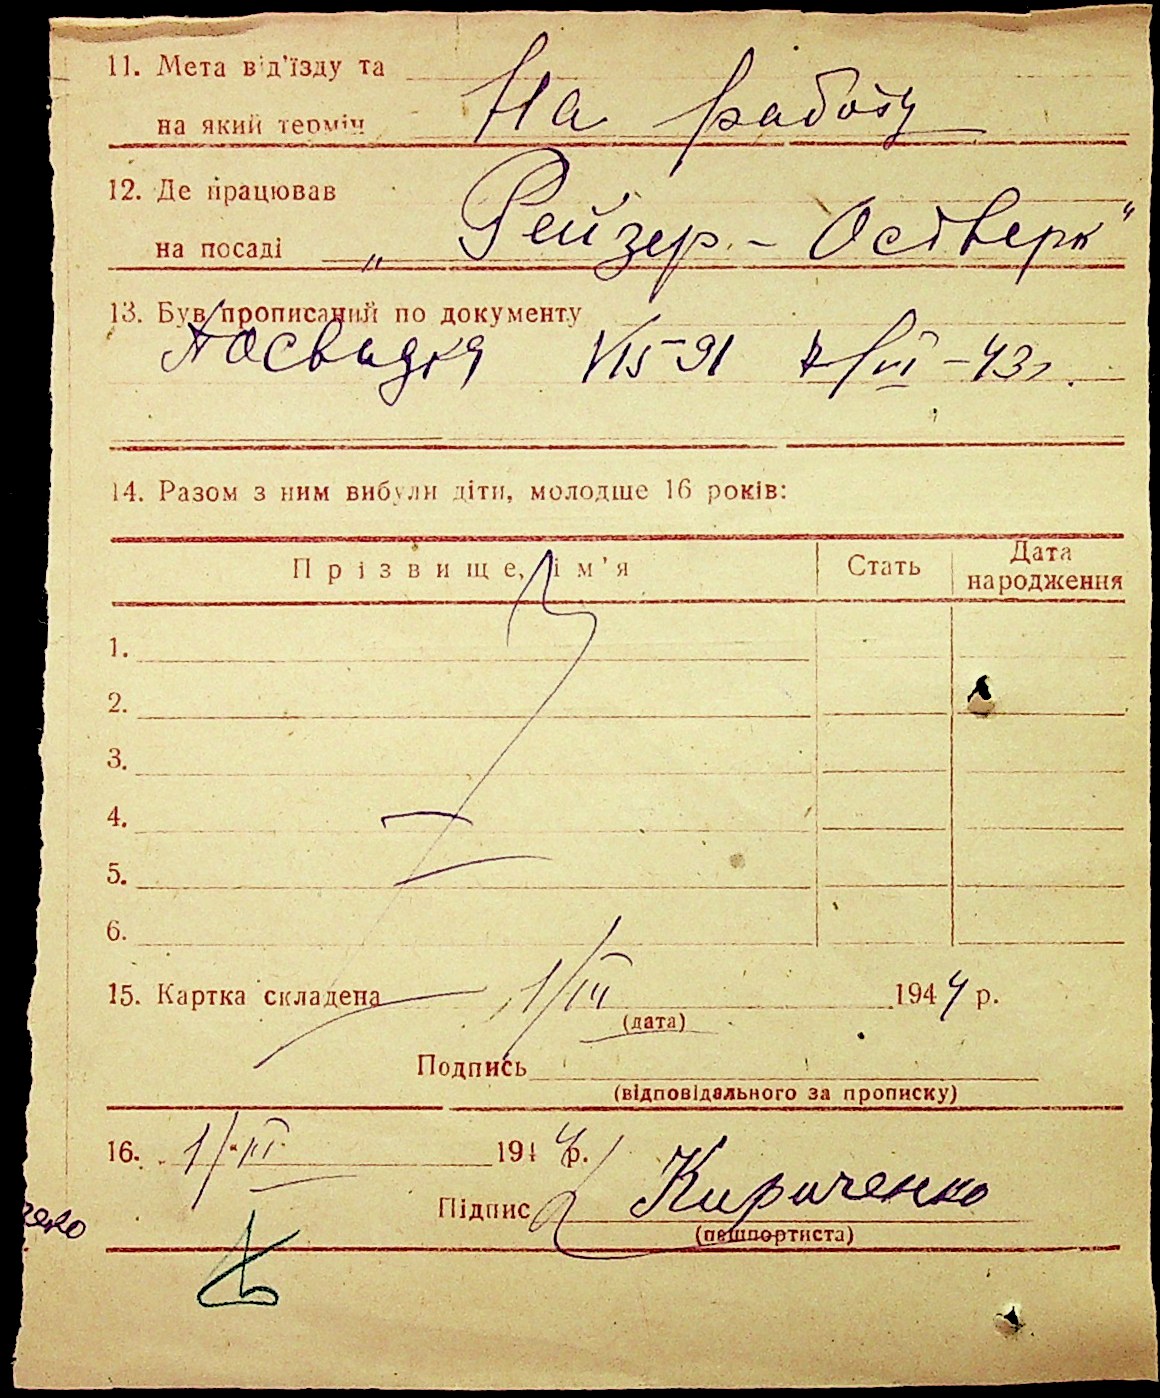 11. Мета від'їзду та
на який термін На работу
12. Де працював
на посаді „Рейзер - Остверк"
13. Був прописаний по документу
Посвидка 7/VI - 43 г.
14. Разом з ним вибули діти, молодше 16 років:
Прізвище, ім'я Стать Дата народження
1.
2.
3.
4.
5.
6.
15. Картка складена 1/III 1944 р.
(дата)
Подпись
(відповідального за прописку)
16. 1/III 1944 р.
Підпис Кириченко
(пашпортиста)